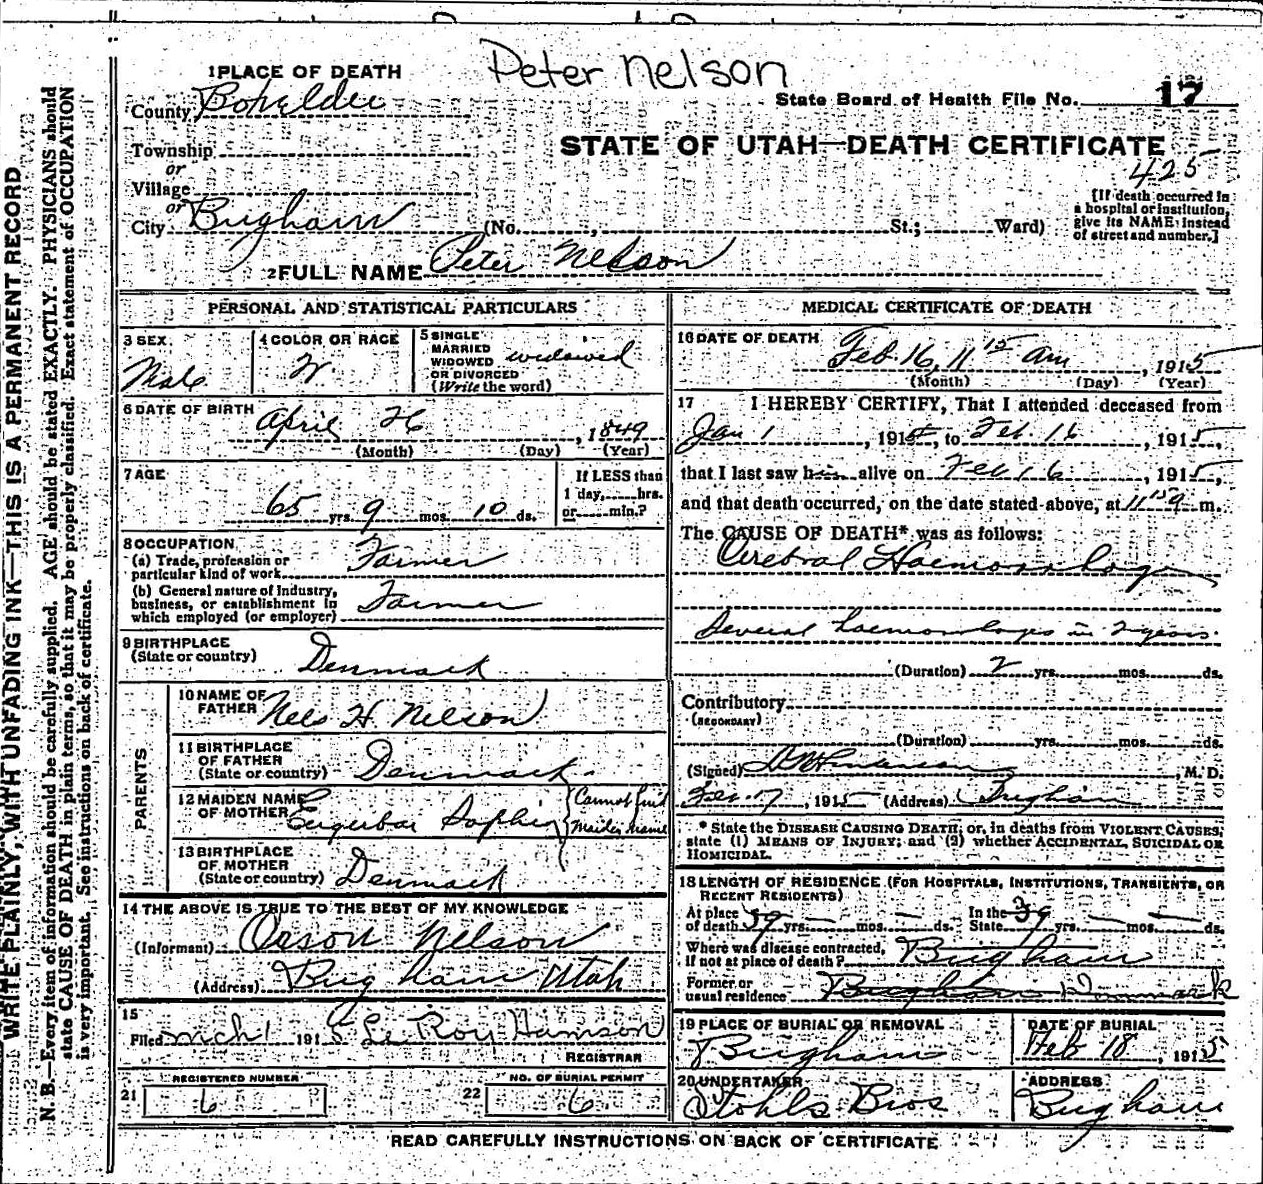 Peter Nelson
1 PLACE OF DEATH
County Boxelder
State Board of Health File No. 17
Township
or
Village
or
City Brigham
STATE OF UTAH—DEATH CERTIFICATE
425
(No. , St.; Ward)
[If death occurred in
a hospital or institution,
give its NAME instead
of street and number.]
2 FULL NAME Peter Nelson
PERSONAL AND STATISTICAL PARTICULARS
3 SEX
Male
4 COLOR OR RACE
W
5 SINGLE
MARRIED
WIDOWED
OR DIVORCED
(Write the word)
widowed
6 DATE OF BIRTH
April 26, 1849
(Month) (Day) (Year)
7 AGE
65 yrs. 9 mos. 10 ds.
If LESS than
1 day, hrs.
or min.?
8 OCCUPATION
(a) Trade, profession or
particular kind of work Farmer
(b) General nature of Industry,
business, or establishment in
which employed (or employer) Farmer
9 BIRTHPLACE
(State or country) Denmark
PARENTS
10 NAME OF
FATHER Nels H. Nelson
11 BIRTHPLACE
OF FATHER
(State or country) Denmark
12 MAIDEN NAME
OF MOTHER Sophia
Cannot find
maiden name
13 BIRTHPLACE
OF MOTHER
(State or country) Denmark
14 THE ABOVE IS TRUE TO THE BEST OF MY KNOWLEDGE
(Informant) Orson Nelson
(Address) Brigham Utah
15
Filed Mch 1 1915 Le Roy
REGISTRAR
REGISTERED NUMBER
21 6
NO. OF BURIAL PERMIT
22 6
MEDICAL CERTIFICATE OF DEATH
16 DATE OF DEATH
Feb. 16, 11 15 am, 1915
(Month) (Day) (Year)
17 I HEREBY CERTIFY, That I attended deceased from
Jan 1, 1915, to Feb 16, 1915,
that I last saw him alive on Feb 16, 1915,
and that death occurred, on the date stated above, at 11 15 a m.
The CAUSE OF DEATH* was as follows:
Cerebral Haemorrhage
Several haemorrhages in 2 years.
(Duration) 2 yrs. mos. ds.
Contributory
(SECONDARY)
(Duration) yrs. mos. ds.
(Signed) , M. D.
Feb. 17, 1915 (Address) Brigham
* State the DISEASE CAUSING DEATH; or, in deaths from VIOLENT CAUSES,
state (1) MEANS OF INJURY; and (2) whether ACCIDENTAL, SUICIDAL OR
HOMICIDAL.
18 LENGTH OF RESIDENCE (FOR HOSPITALS, INSTITUTIONS, TRANSIENTS, OR
RECENT RESIDENTS)
At place
of death 39 yrs. — mos. — ds.
In the
State 39 yrs. — mos. — ds.
Where was disease contracted,
if not at place of death? Brigham
Former or
usual residence Brigham Denmark
19 PLACE OF BURIAL OR REMOVAL
Brigham
DATE OF BURIAL
Feb 18, 1915
20 UNDERTAKER
Stohls Bros
ADDRESS
Brigham
READ CAREFULLY INSTRUCTIONS ON BACK OF CERTIFICATE
WRITE PLAINLY, WITH UNFADING INK—THIS IS A PERMANENT RECORD
N. B.—Every item of information should be carefully supplied. AGE should be stated EXACTLY. PHYSICIANS should
state CAUSE OF DEATH in plain terms, so that it may be properly classified. Exact statement of OCCUPATION
is very important. See instructions on back of certificate.